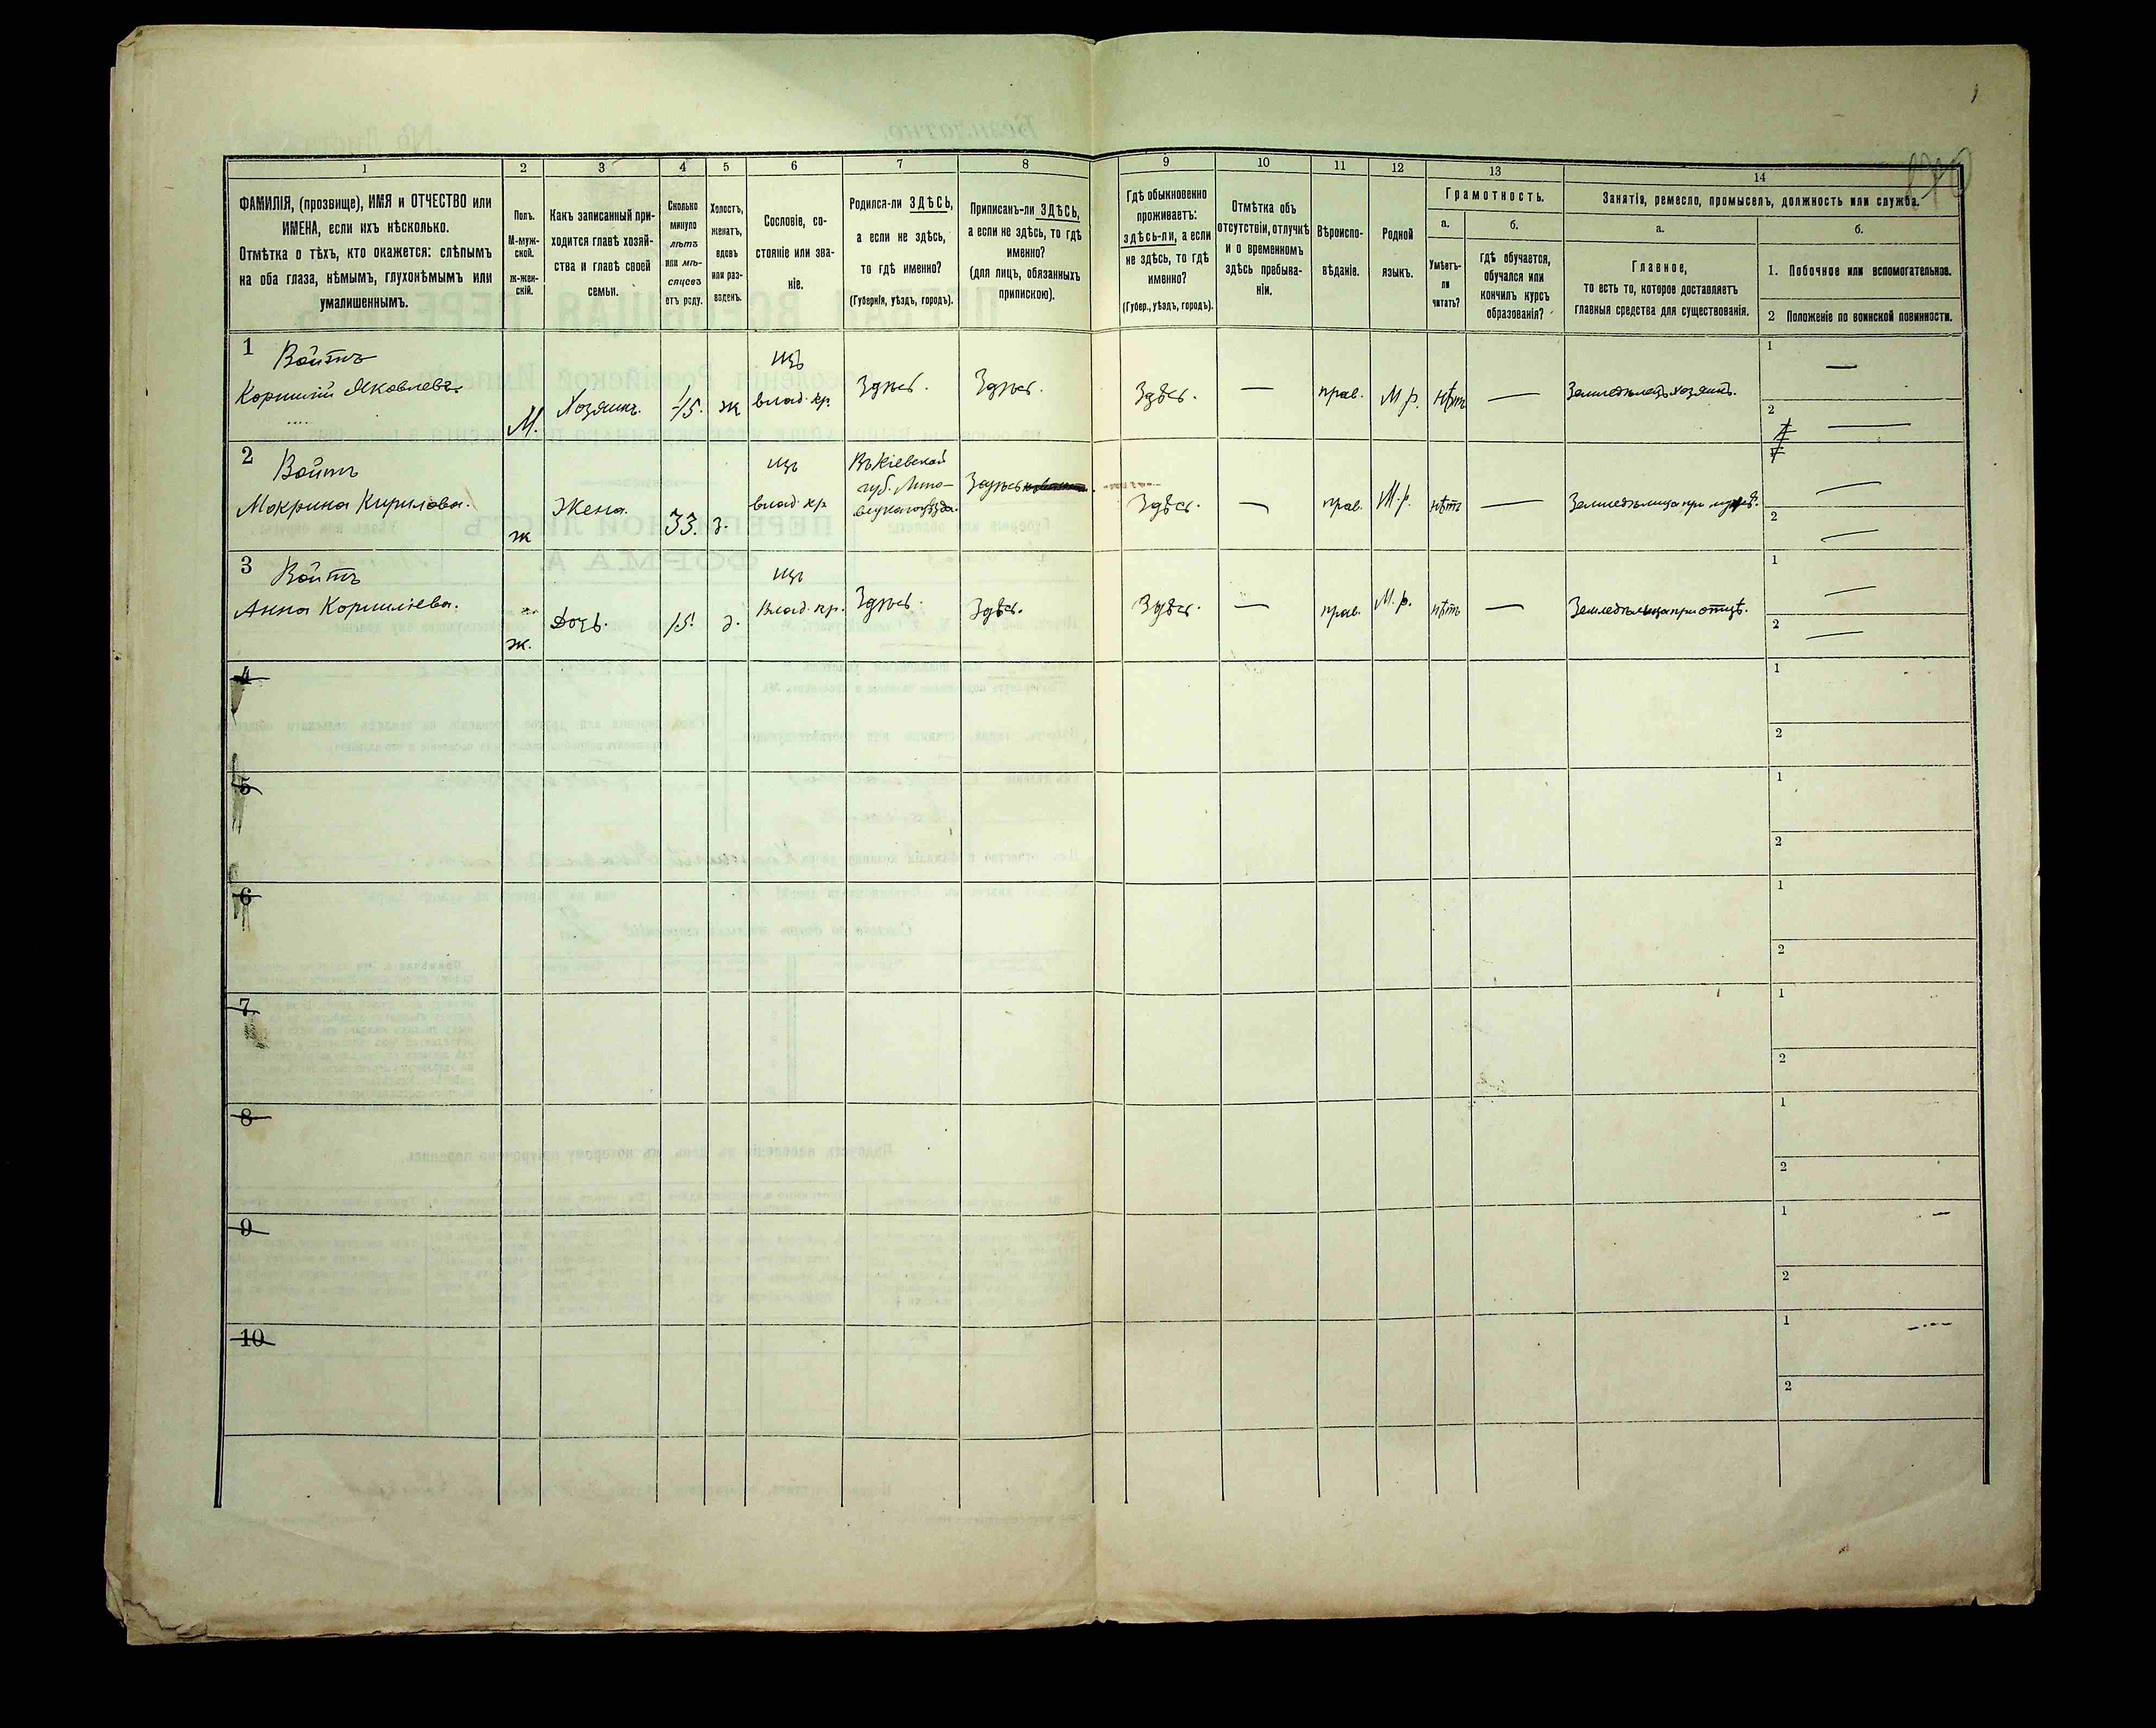 1 2 3 4 5 6 7 8 9 10 11 12 13 14
ФАМИЛІЯ, (прозвище), ИМЯ и ОТЧЕСТВО или
ИМЕНА, если ихъ нѣсколько.
Отмѣтка о тѣхъ, кто окажется: слѣпымъ
на оба глаза, нѣмымъ, глухонѣмымъ или
умалишеннымъ.
Полъ.
М-муж-
ской.
ж-жен-
скій.
Какъ записанный при-
ходится главѣ хозяй-
ства и главѣ своей
семьи.
Сколько
минуло
лѣтъ
или мѣ-
сяцевъ
отъ роду.
Холостъ,
женатъ,
вдовъ
или раз-
веденъ.
Сословіе, со-
стояніе или зва-
ніе.
Родился-ли ЗДѢСЬ,
а если не здѣсь,
то гдѣ именно?
(Губернія, уѣздъ, городъ).
Приписанъ-ли ЗДѢСЬ,
а если не здѣсь, то гдѣ
именно?
(для лицъ, обязанныхъ
припискою).
Гдѣ обыкновенно
проживаетъ:
здѣсь-ли, а если
не здѣсь, то гдѣ
именно?
(Губер., уѣздъ, городъ).
Отмѣтка объ
отсутствіи, отлучкѣ
и о временномъ
здѣсь пребыва-
ніи.
Вѣроиспо-
вѣданіе.
Родной
языкъ.
Грамотность.
а.
Умѣетъ-
ли
читать?
б.
Гдѣ обучается,
обучался или
кончилъ курсъ
образованія?
Занятія, ремесло, промыселъ, должность или служба.
а.
Главное,
то есть то, которое доставляетъ
главныя средства для существованія.
б.
1. Побочное или вспомогательное.
2 Положеніе по воинской повинности.
1 Войтъ
Корнилій Яковлевъ.
М.
Хозяинъ.
ж
изъ
влад. кр.
Здѣсь.
Здѣсь.
Здѣсь.
—
прав.
М.р.
нѣтъ
—
Земледѣлецъ хозяинъ.
1 —
2 —
2 Войтъ
Макрина Кирилова.
ж
Жена.
33.
з.
изъ
влад. кр
Въ Кіевской
губ. Липо-
вецкаго уѣзда.
Здѣсь
Здѣсь.
—
прав.
М.р.
нѣтъ
—
Земледѣлица при мужѣ.
1 —
2 —
3 Войтъ
Анна Корниліева.
ж.
Дочь.
15.
изъ
Влад. кр.
Здѣсь.
Здѣсь.
Здѣсь.
—
прав.
М.р.
нѣтъ
—
Земледѣлица при отцѣ.
1 —
2 —
4
1
2
5
1
2
6
1
2
7
1
2
8
1
2
9
1
2
10
1
2